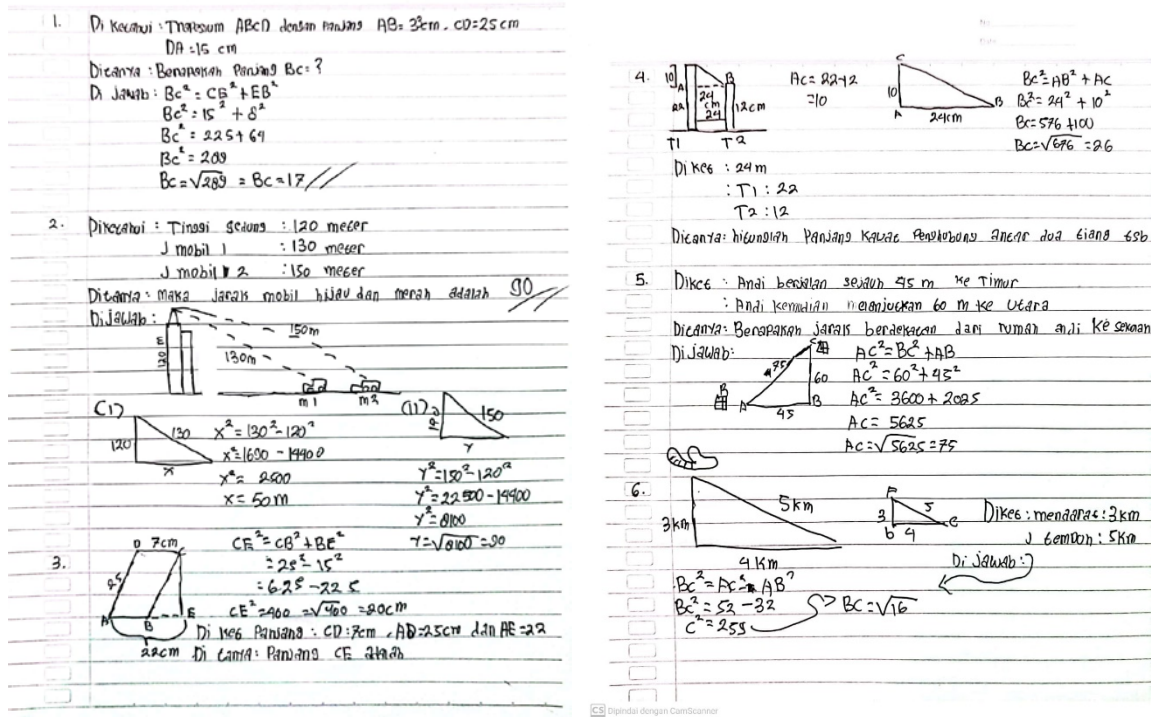 1. Di Ketahui : Trapesium ABCD dengan Panjang AB = 33cm. CD=25cm
DA =15 cm
Ditanya : Berapakah Panjang BC= ?
Di Jawab : BC² = CE² + EB²
BC² = 15² + 8²
BC² = 225 + 64
BC² = 289
BC = √289 = BC = 17
2. Diketahui : Tinggi gedung : 120 meter
J mobil 1 : 130 meter
J mobil 2 : 150 meter
Ditanya : Maka Jarak mobil hijau dan merah adalah 90
Dijawab :
120 m
150m
130m
m 1
m 2
(I)
120
130
x
x² = 130² - 120²
x² = 1690 - 14400
x² = 2500
x = 50m
(II)
150
y
y² = 150² - 120²
y² = 22500 - 14400
y² = 8100
y = √8100 = 90
3.
D 7cm C
25
A B E
22cm
CE² = CB² + BE²
= 25² - 15²
= 625 - 225
CE² = 400 = √400 = 20cm
Di Ket Panjang : CD = 7cm, AD = 25cm dan AE = 22
Di tanya : Panjang CE adalah
4.
10
A
22
B
24 cm
24
12cm
T1 T2
AC = 22-12
=10
C
10
A 24cm B
BC² = AB² + AC
B² = 24² + 10²
BC = 576 + 100
BC = √676 = 26
Diket : 24 m
: T1 : 22
T2 : 12
Ditanya : hitunglah Panjang Kawat Penghubung antar dua tiang tsb
5. Diket : Andi berjalan sejauh 45 m ke Timur
: Andi Kemudian melanjutkan 60 m ke Utara
Ditanya : Berapakah jarak berdekatan dari rumah andi ke sekolah
Di jawab :
R
75
C
60
A 45 B
AC² = BC² + AB
AC² = 60² + 45²
AC² = 3600 + 2025
AC = 5625
AC = √5625 = 75
6.
3km
5km
4km
3
5
b 4 C
Diket : mendatar : 3km
J tembok : 5km
Di jawab :
BC² = AC² AB²
BC² = 52 - 32
C² = 259
BC = √16
CS Dipindai dengan CamScanner